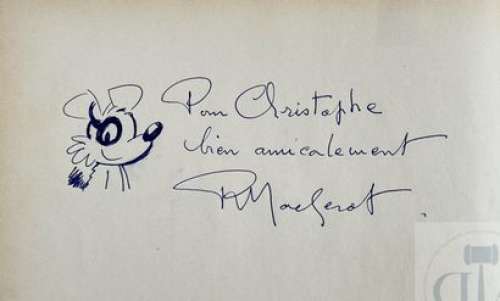 Pour Christophe
bien amicalement
R Macherot.